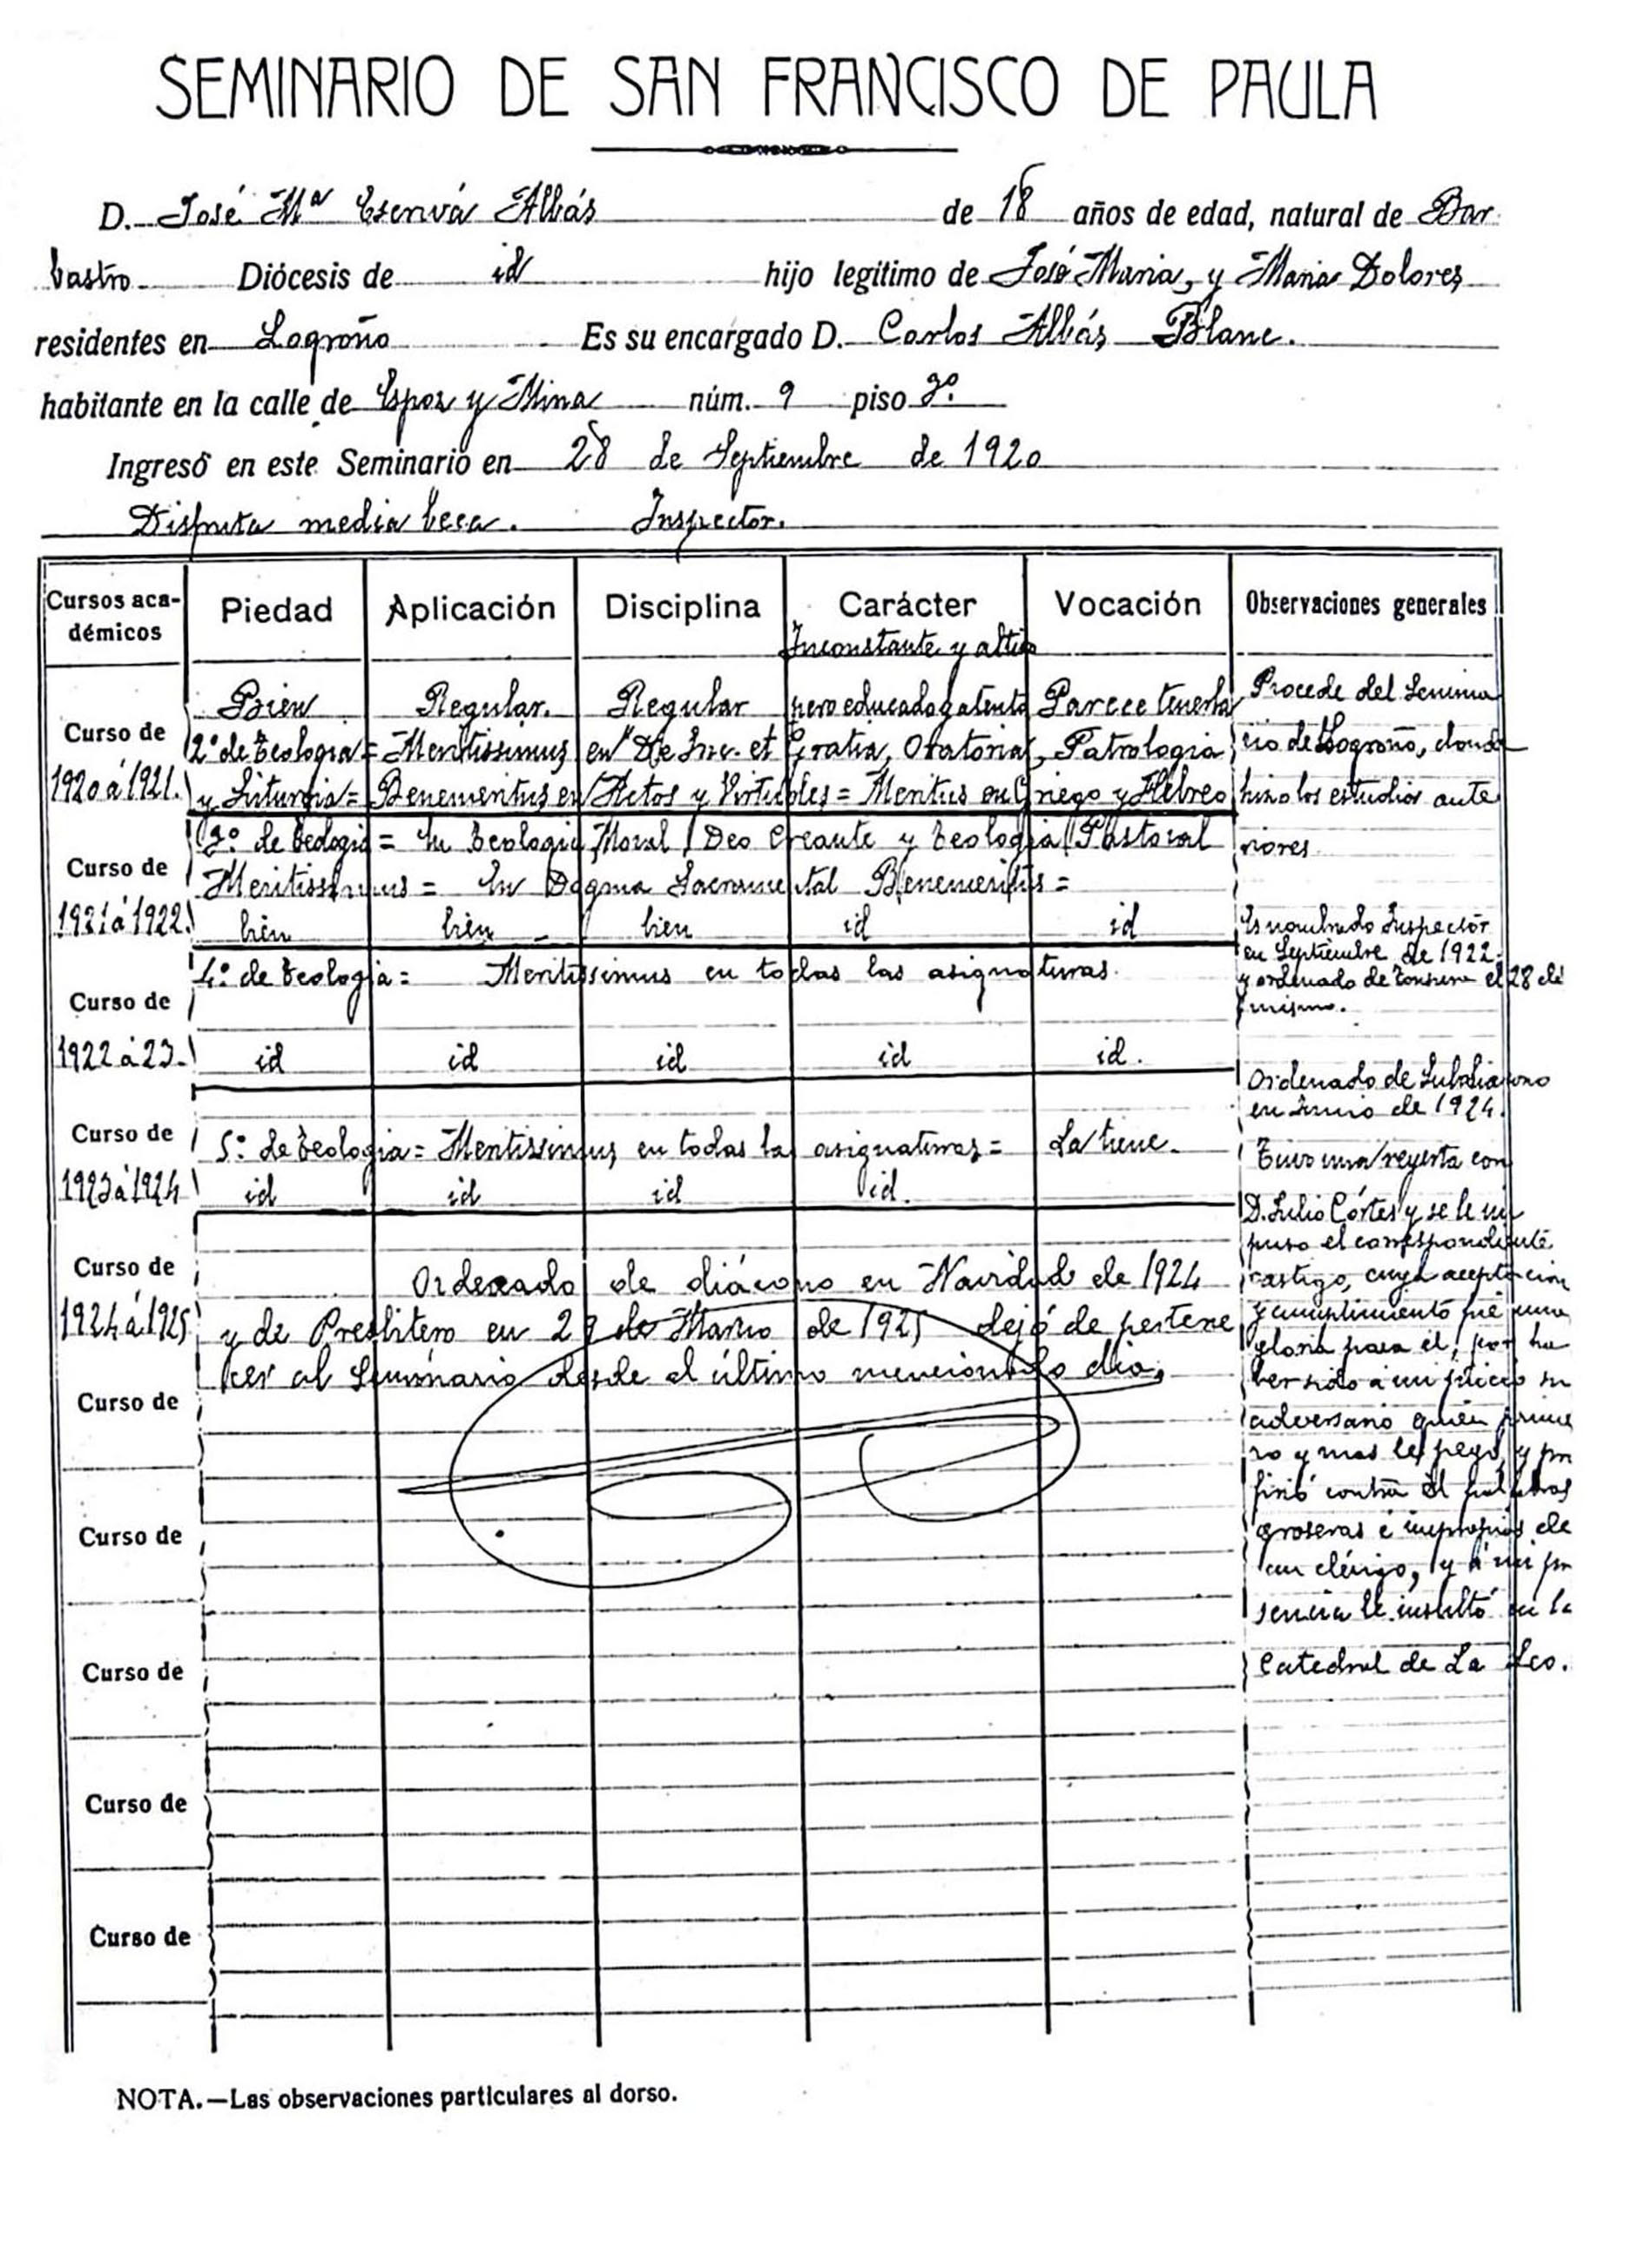 SEMINARIO DE SAN FRANCISCO DE PAULA
D. José Mª Escrivá Albás de 18 años de edad, natural de Bar
bastro Diócesis de id hijo legítimo de José Maria, y Maria Dolores
residentes en Logroño Es su encargado D. Carlos Albás Blanc.
habitante en la calle de Espoz y Mina núm. 9 piso 3º.
Ingresó en este Seminario en 28 de Septiembre de 1920
Disfruta media beca. Inspector.
Cursos aca-
démicos
Piedad
Aplicación
Disciplina
Carácter
Vocación
Observaciones generales
Curso de
1920 á 1921.
Inconstante y altivo
Bien Regular. Regular pero educado y atento Parece tenerla
2º de Teologia = Meritissimus en "De Inc. et Gratia, Oratoria, Patrologia
y Liturgia = Benemeritus en Actos y Virtudes = Meritus en Griego y Hebreo
Procede del Semina
rio de Logroño, donde
hizo los estudios ante
riores
Curso de
1921 á 1922.
3º. de Teologia = En Teologia Moral, Deo Creante y Teologia Pastoral
Meritissimus = En Dogma Sacramental Benemeritus =
bien bien bien id id
Es nombrado Inspector
en Septiembre de 1922.
y ordenado de tonsura el 28 del
mismo.
Curso de
1922 á 23.
4º. de Teologia = Meritissimus en todas las asignaturas.
id id id id id.
Ordenado de Subdiacono
en Junio de 1924.
Curso de
1923 á 1924
5º. de Teologia = Meritissimus en todas las asignaturas = La tiene.
id id id id.
Tuvo una reyerta con
D. Julio Córtes y se le im
puso el correspondiente
castigo, cuya aceptacion
y cumplimiento fué una
gloria para él, por ha
ber sido a mi juicio su
adversario quien prime
ro y mas le pegó, y pro
firió contra él palabras
groseras é impropias de
un clérigo, y á mi pre
sencia le insultó en la
Catedral de La Seo.
Curso de
1924 á 1925
Ordenado de diácono en Navidad de 1924
y de Presbítero en 28 de Marzo de 1925 dejó de pertene
cer al Seminario desde el último mencionado dia,
Curso de
Curso de
Curso de
Curso de
Curso de
NOTA.—Las observaciones particulares al dorso.